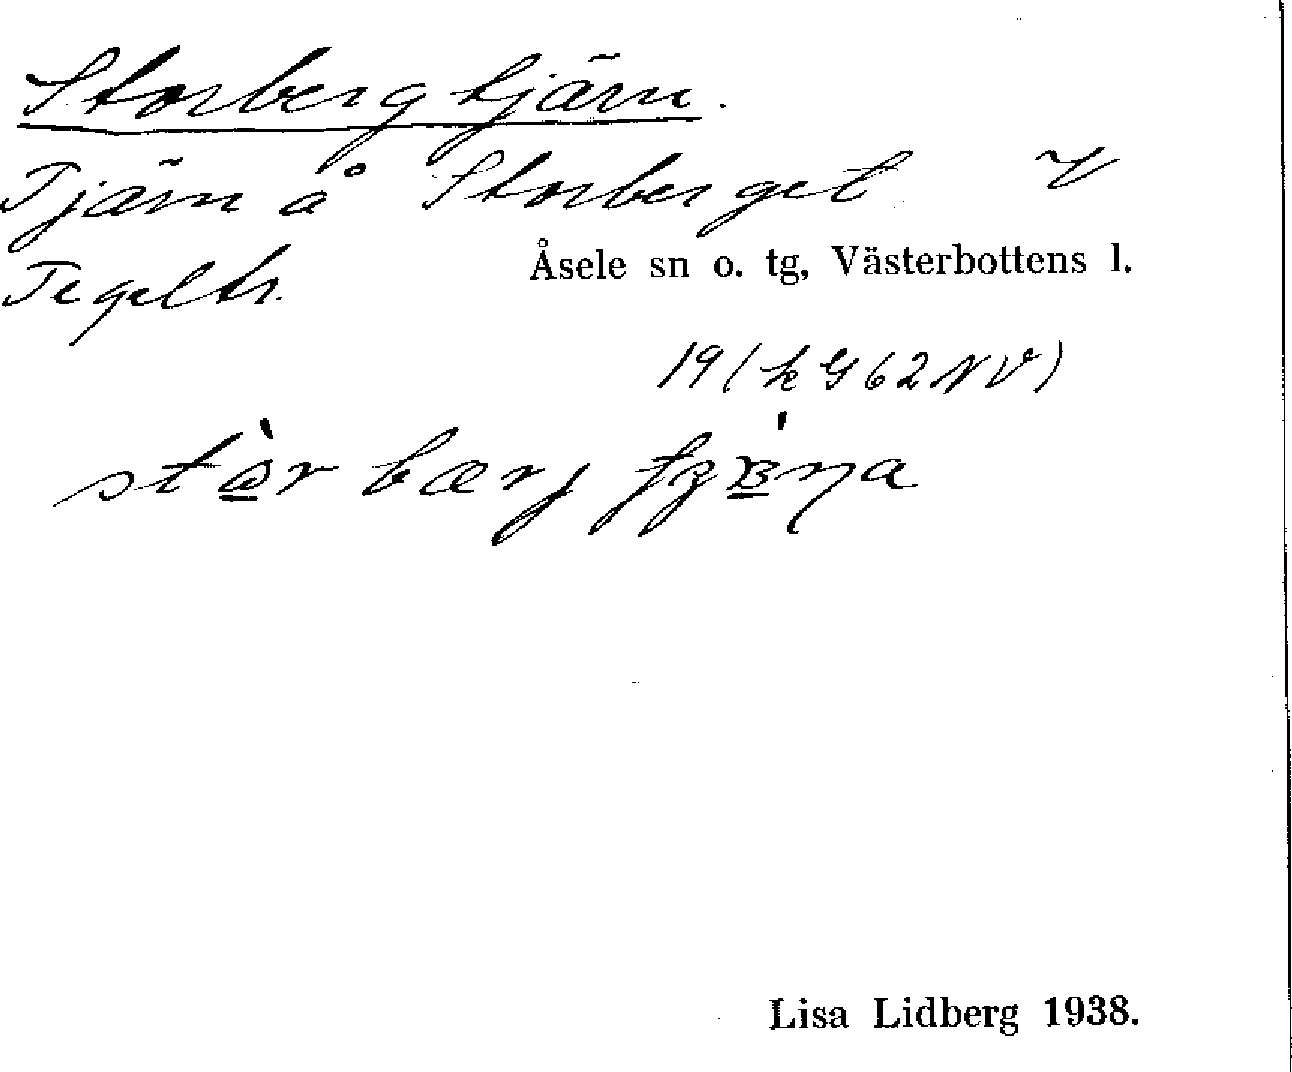 Storbergtjärn.
Tjärn å Storberget V
Tegeltr.
Åsele sn o. tg, Västerbottens l.
19 (k G 62 NV)
Lisa Lidberg 1938.